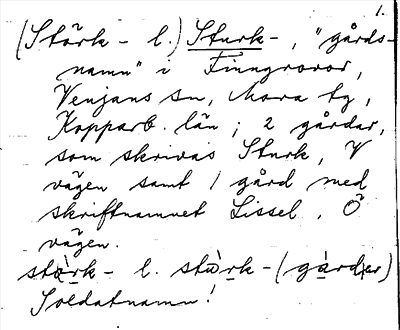 1.
(Stårk - l.) Sturk-, "gårds-
namn" i Finngruvor,
Venjans sn, Mora tg,
Kopparb. län; 2 gårdar,
som skrivas Sturk, V
vägen samt 1 gård med
skriftnamnet Lissel, Ö
vägen.
stàrk- l. stùrk- (gàrdær)
Soldatnamn!